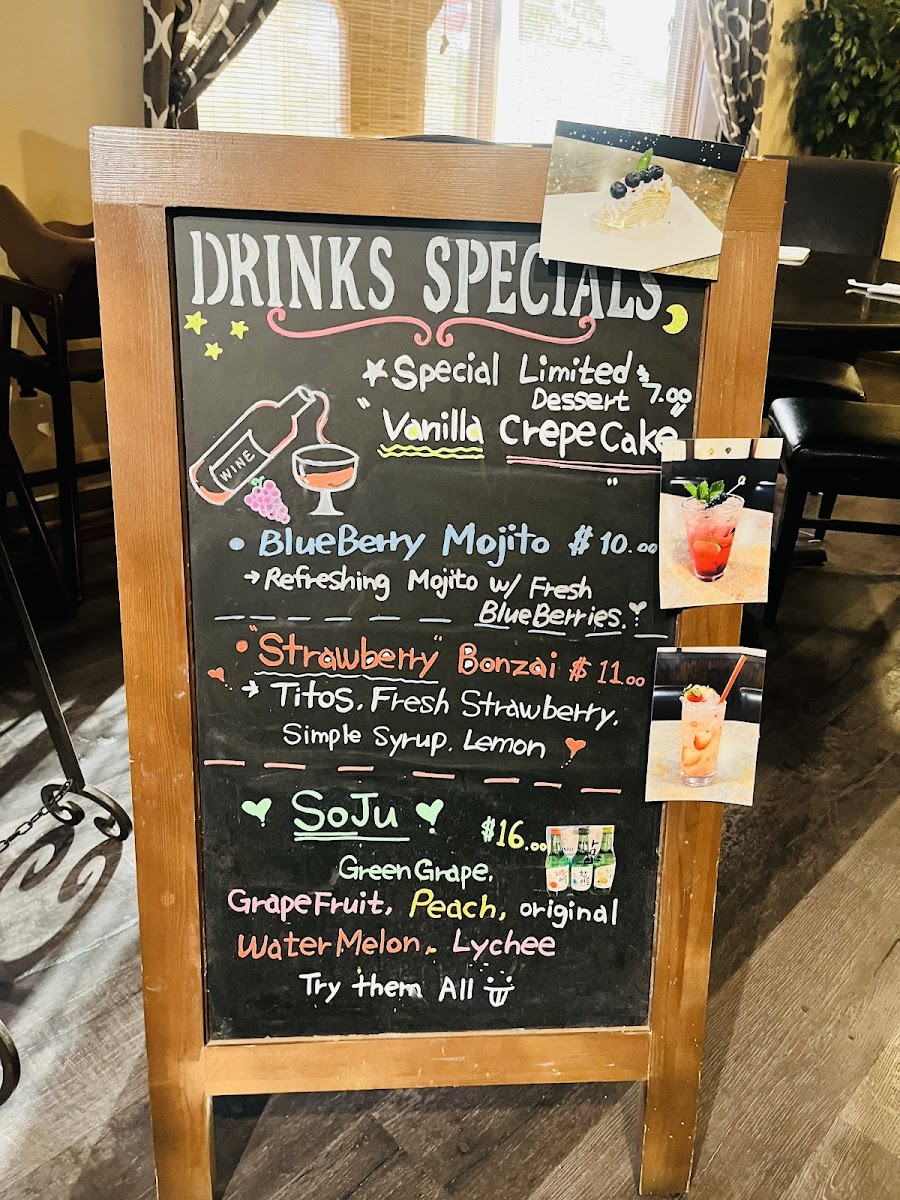 DRINKS SPECIALS
Special Limited
Dessert $7.00
"Vanilla Crepe Cake"
WINE
• BlueBerry Mojito $10.00
→ Refreshing Mojito w/ Fresh
BlueBerries.
• "Strawberry" Bonzai $11.00
→ Titos. Fresh Strawberry.
Simple Syrup. Lemon
SoJu
$16.00
Green Grape.
GrapeFruit, Peach, original
WaterMelon. Lychee
Try them All